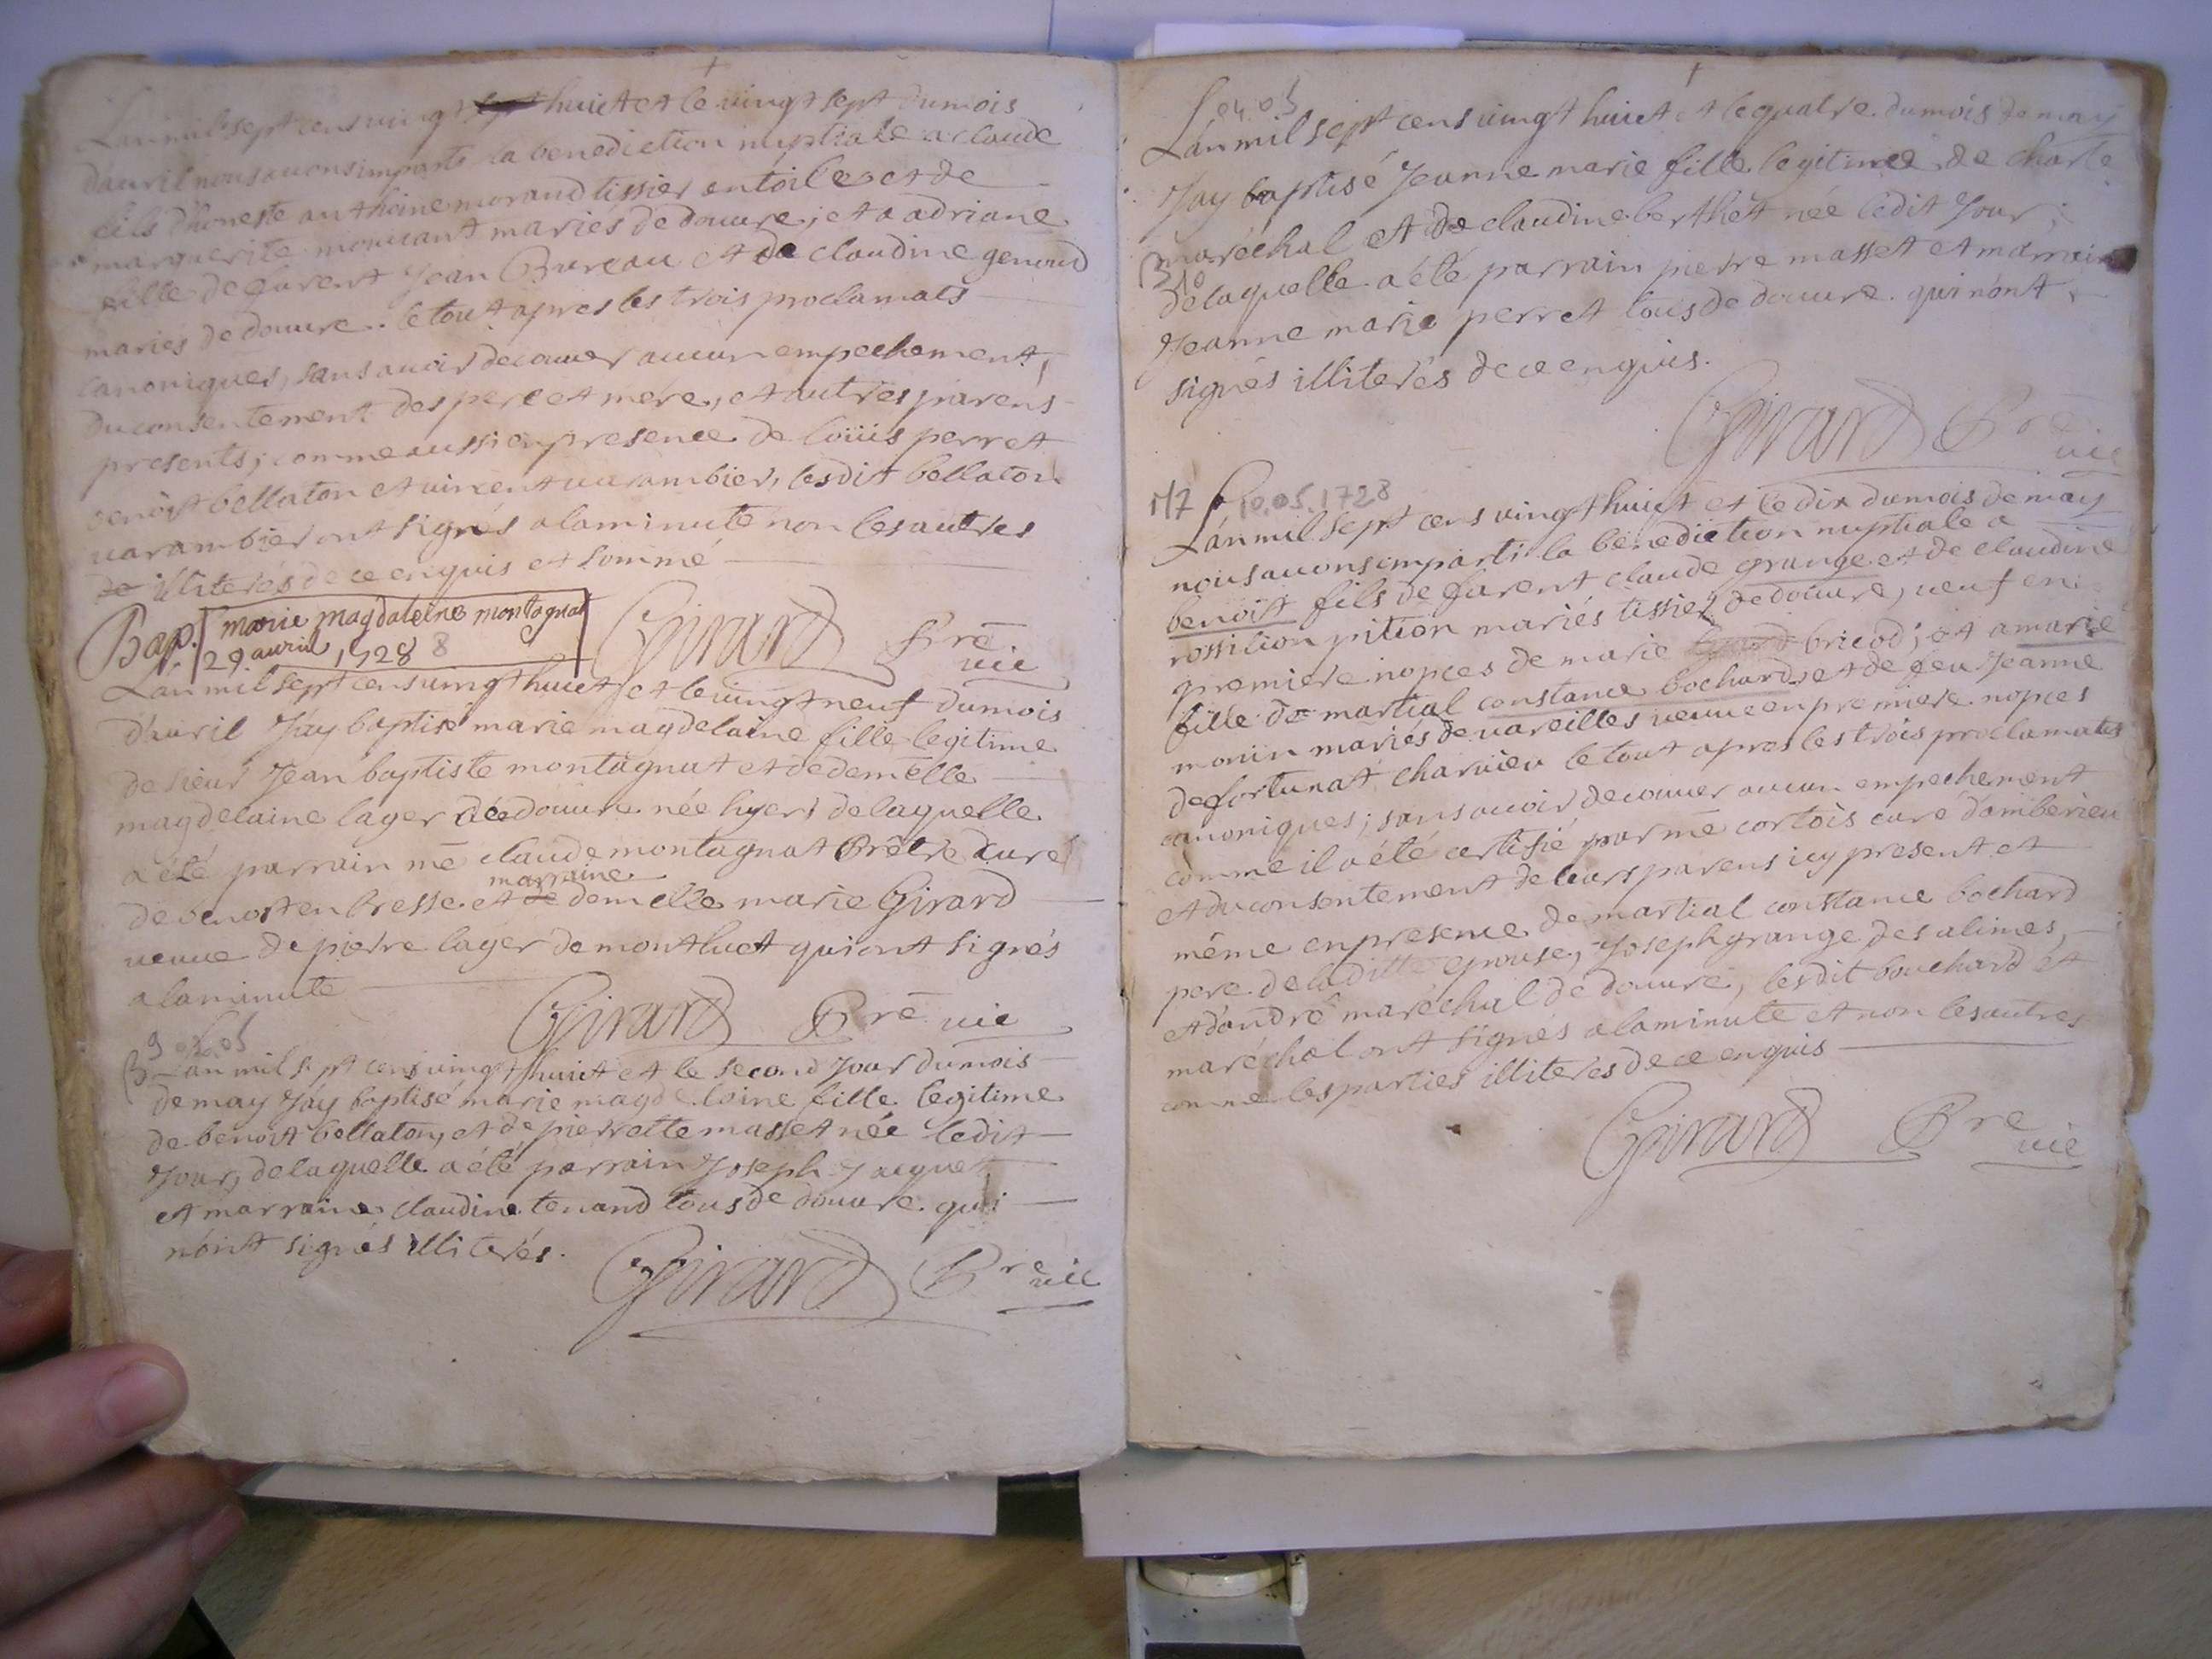 Lan mil sept cens vingt huict et le vingt sept du mois
d'auril nous auons imparti la benediction nuptiale a claude
fils d'honeste anthoine morand tissier en toile et de
marguerite mariés de douure; et a adriane
fille de furent Jean Bureau et de claudine genoud
mariés de douure. le tout apres les trois proclamats
canoniques, sans auoir decouuer aucun empechement,
du consentement des pere et mere, et autres parens
presents; comme aussi en presence de loüis perret
benoit bellaton et vincent uarambier, lesdit bellaton
uarambier ont signés a la minute non les autres
illiterés de ce enquis et sommé
Girard Pre vic
Bap. marie magdaleine montagnat
29 auril 1728 8
Lan mil sept cens vingt huict et le vingt neuf du mois
d'auril J'ay baptisé marie magdelaine fille legitime
de sieur Jean baptiste montagnat et de demelle
magdelaine lager de douure née hyer; de laquelle
a été parrain me claude montagnat Prêtre Curé
marraine
de benost en bresse. et de demelle marie Girard
veuue de pierre lager de montluet qui ont signés
a la minute
Girard Pre vic
9 02.05
B Lan mil sept cens vingt huict et le second Jour du mois
de may J'ay baptisé marie magdeloine fille legitime
de benoit bellaton, et de pierrette masset née ledit
Jour, de laquelle a été parrain Joseph Jacquet
et marraine claudine tenand tous de douure. qui
n'ont signés illiterés.
Girard Pre vic
Le 4.05
L'an mil sept cens vingt huict et le quatre du mois de may
J'ay baptisé Jeanne marie fille legitimee de charle
maréchal et de claudine berthet née ledit Jour;
B 10
de laquelle a été parrain pierre masset et marraine
Jeanne marie perret tous de douure. qui n'ont
signés illiterés de ce enquis.
Girard Pre vic
M7 10.05.1728
L'an mil sept cens vingt huict et le dix du mois de may
nous auons imparti la benediction nuptiale a
benoist fils de furent claude grange et de claudine
rossilion pition mariés tissier de douure, veuf en
premiere nopces de marie bricod; et a marie
fille de martial constance bochard, et de feu Jeanne
monin mariés de uareilles veuue en premiere nopces
de fortunat charuieu le tout apres les trois proclamates
canoniques; sans auoir decouuer aucun empechement
comme il a été certifié par me cortois curé d'ambérieu
et du consentement de leurs parens icy present et
même en presence de martial constance bochard
pere de laditte epouse, Joseph grange des alimes,
et d'andré maréchal de douure, lesdit bouchard et
maréchal ont signés a la minute et non les autres
comme les parties illiterés de ce enquis
Girard Pre vic